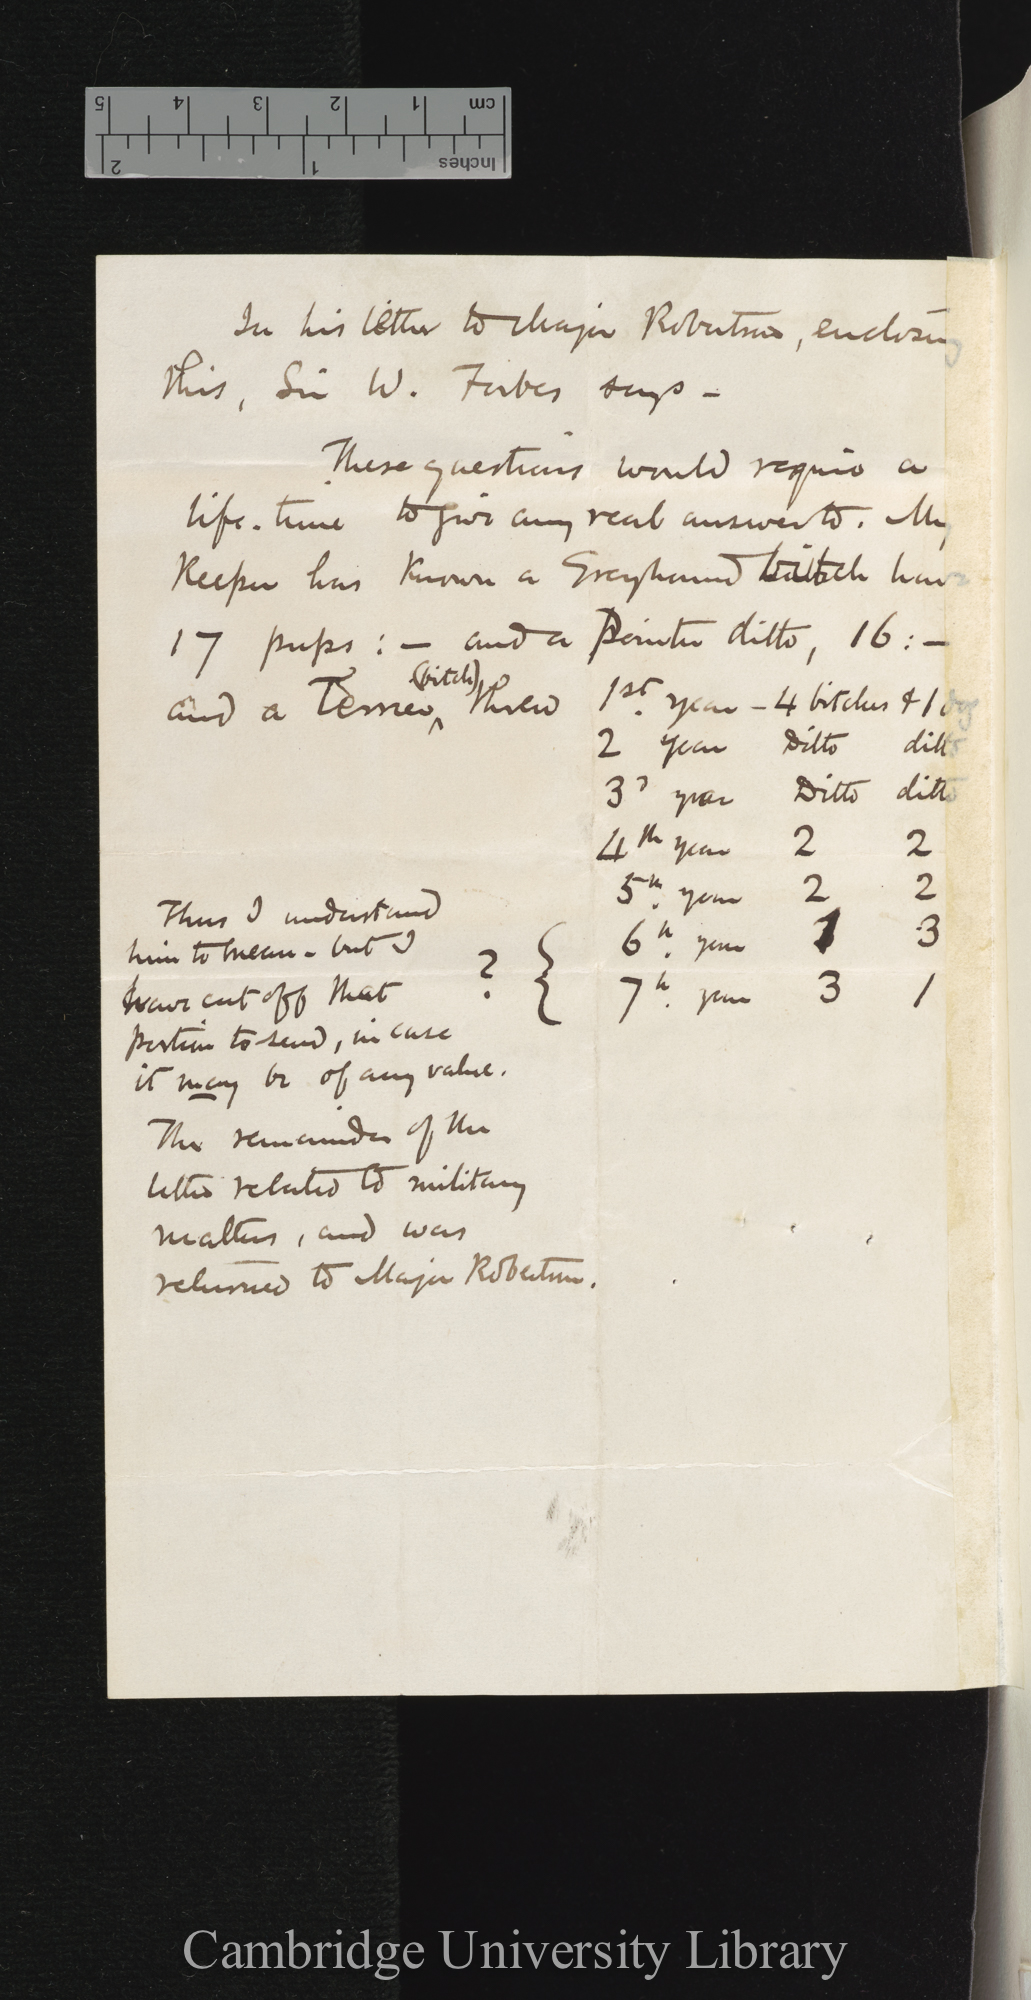 cm 1 2 3 4 5
Inches 1 2
In his letter to Major Robertson, enclosing
this, Sir W. Forbes says –
These questions would require a
life-time to give any real answer to. My
Keeper has known a Greyhound bitch have
17 pups : – and a Pointer ditto, 16 : –
(bitch),
and a Terrier, threw 1st. year – 4 bitches & 1 dog
2 year Ditto ditto
3d year Ditto ditto
4th year 2 2
5th. year 2 2
6th. year 1 3
7th. year 3 1
Thus I understand
him to mean – but I
have cut off that ? {
portion to send, in case
it may be of any value.
The remainder of the
letter related to military
matters, and was
returned to Major Robertson.
Cambridge University Library